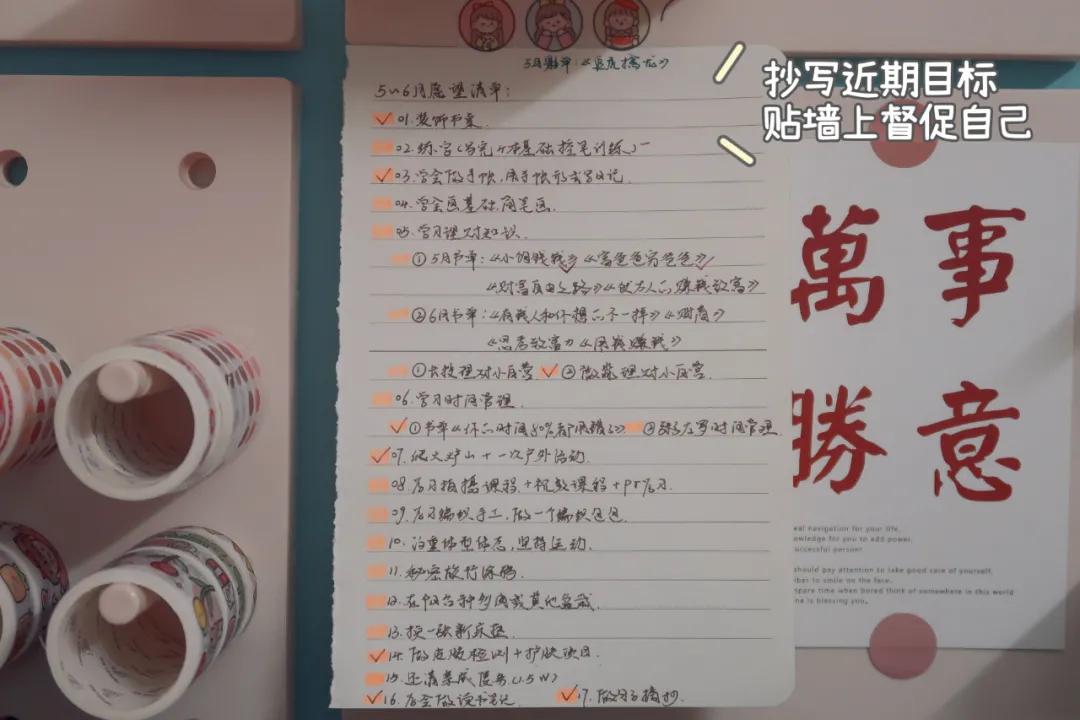 抄写近期目标
贴墙上督促自己
5～6月愿望清单:
✓ 01.装饰书桌
02.练字(写完一本基础控笔训练)
✓ 03.学会做手帐,用手帐形式写日记.
04.学会画基础简笔画.
05.学习理财知识.
①5月书单:《小狗钱钱》✓《富爸爸穷爸爸》✓
《财富自由之路》
②6月书单:《有钱人和你想的不一样》
《思考致富》《用钱赚钱》
①长投理财小白营 ✓ ② 理财小白营.
06.学习时间管理.
✓①书单《你的时间80%都 》 ② 时间管理.
✓ 07.爬火炉山+一次户外活动.
08. 课程+ 课程+pr
09. 编织手工,做一个编织包包.
10.注重体型体态,坚持运动.
11.秘密旅行
12.在阳台种 或其他盆栽.
13.换一张新床垫.
✓ 14.做皮肤检测+护肤项目.
15.还清 (1.5W)
✓ 16. 做读书笔记. ✓ 17. 摘抄.
萬事
勝意
eal navigation for your life,
owledge for you to add power,
successful person!
should pay attention to take good care of yourself.
ber to smile on the face.
spare time when bored think of somewhere in this world
ne is blessing you。